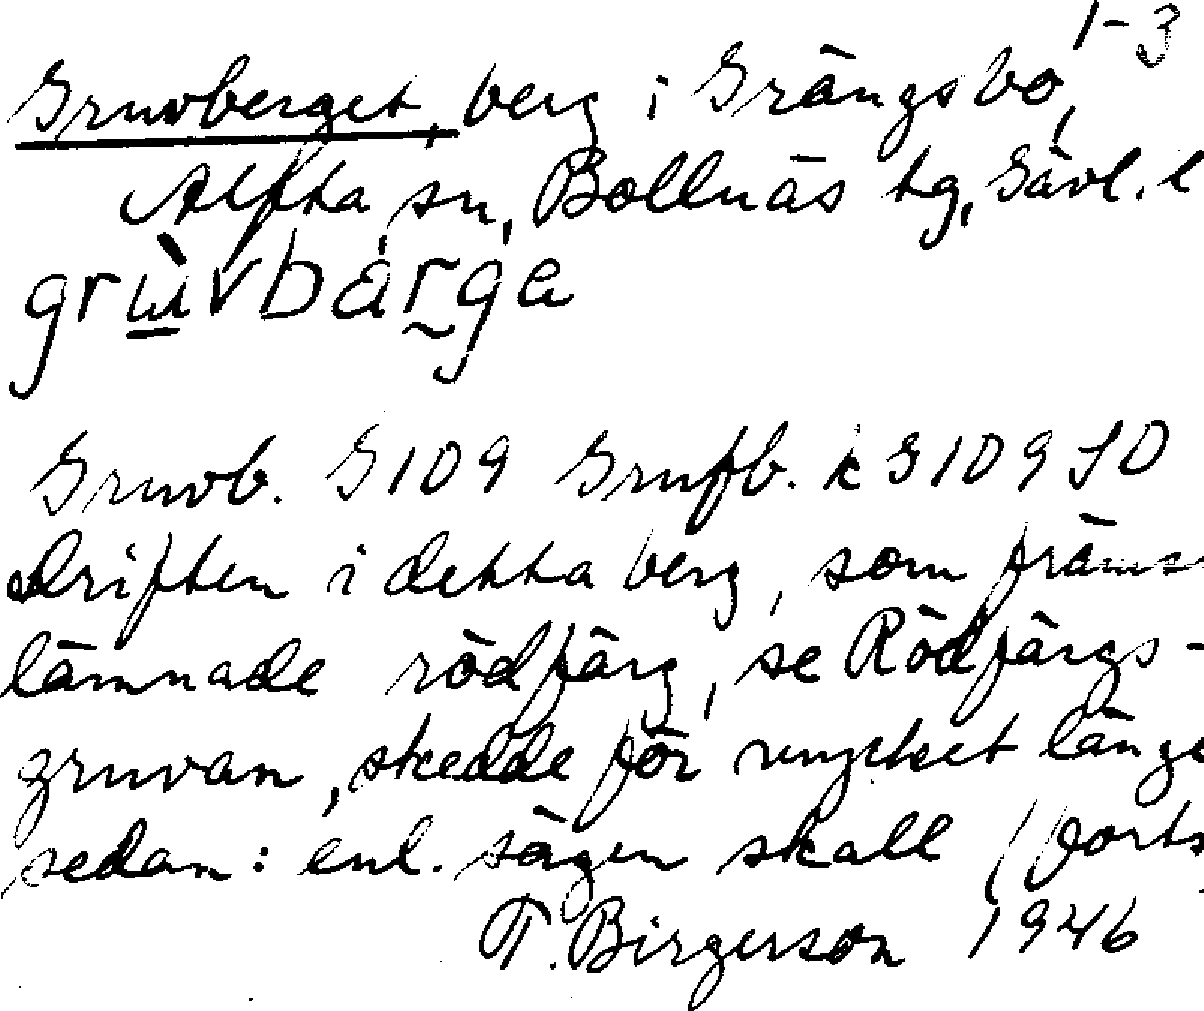 1-3
Gruvberget, berg i Grängsbo,
Alfta sn, Bollnäs tg, Gävl. l
Gruvb. G109 Grufb. k G109 SO
Driften i detta berg, som främs
lämnade rödfärg, se Rödfärgs-
gruvan, skedde för mycket länge
sedan: enl. sägen skall (forts
T. Birgerson 1946